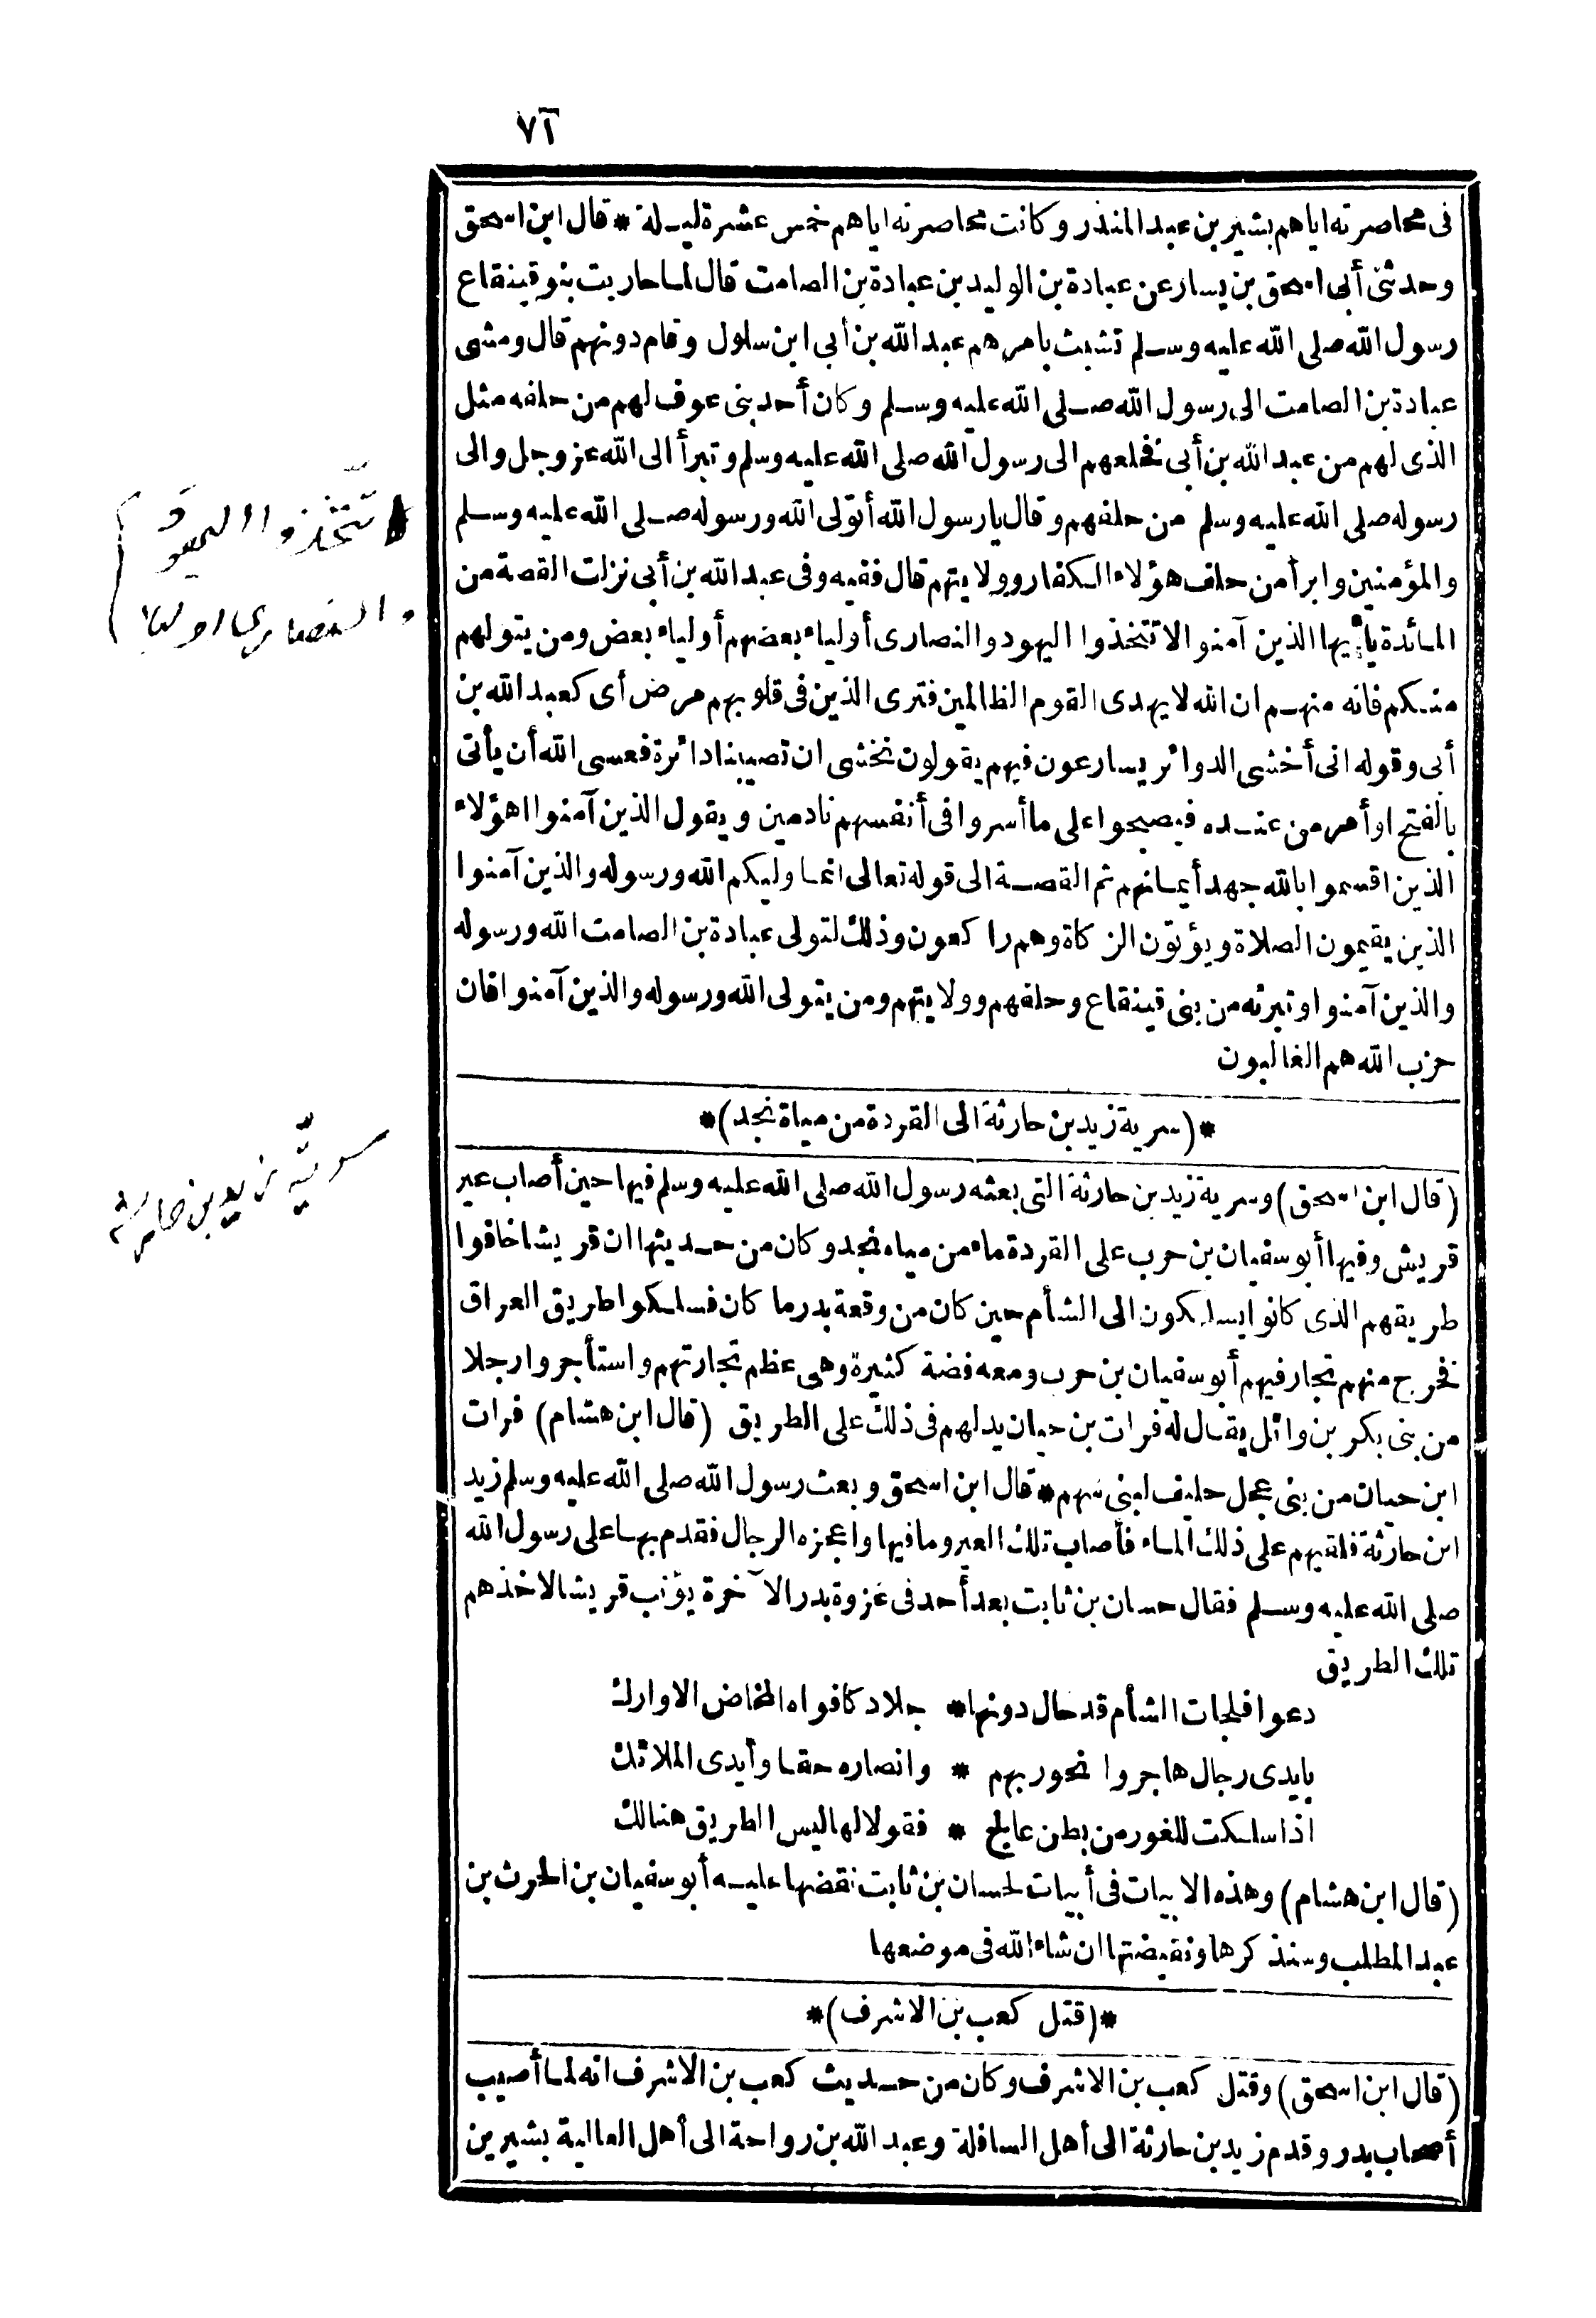 ٧١
فى محاصرته اياهم بشير بن عبد المنذر وكانت محاصرته اياهم خمس عشرة ليلة * قال ابن اسحق
وحدثنى أبى اسحق بن يسار عن عبادة بن الوليد بن عبادة بن الصامت قال لما حاربت بنو قينقاع
رسول الله صلى الله عليه وسلم تشبث بامرهم عبد الله بن أبى ابن سلول وقام دونهم قال ومشى
عبادة بن الصامت الى رسول الله صلى الله عليه وسلم وكان أحد بنى عوف لهم من حلفه مثل
الذى لهم من عبد الله بن أبى فخلعهم الى رسول الله صلى الله عليه وسلم وتبرأ الى الله عز وجل والى
رسوله صلى الله عليه وسلم من حلفهم وقال يا رسول الله أتولى الله ورسوله صلى الله عليه وسلم
والمؤمنين وابرأ من حلف هؤلاء الكفار وولايتهم قال ففيه وفى عبد الله بن أبى نزلت القصة من
المائدة يا أيها الذين آمنوا لا تتخذوا اليهود والنصارى أولياء بعضهم أولياء بعض ومن يتولهم
منكم فانه منهم ان الله لا يهدى القوم الظالمين فترى الذين فى قلوبهم مرض أى كعبد الله بن
أبى وقوله انى أخشى الدوائر يسارعون فيهم يقولون نخشى ان تصيبنا دائرة فعسى الله أن يأتى
بالفتح او أمر من عنده فيصبحوا على ما أسروا فى أنفسهم نادمين ويقول الذين آمنوا اهؤلاء
الذين اقسموا بالله جهد أيمانهم ثم القصة الى قوله تعالى انما وليكم الله ورسوله والذين آمنوا
الذين يقيمون الصلاة ويؤتون الزكاة وهم راكعون وذلك لتولى عبادة بن الصامت الله ورسوله
والذين آمنوا وتبرئه من بنى قينقاع وحلفهم وولايتهم ومن يتولى الله ورسوله والذين آمنوا فان
حزب الله هم الغالبون
*(سرية زيد بن حارثة الى القردة من مياة نجد)*
(قال ابن اسحق) وسرية زيد بن حارثة التى بعثه رسول الله صلى الله عليه وسلم فيها حين أصاب عير
قريش وفيها أبو سفيان بن حرب على القردة ماء من مياه نجد وكان من حديثها ان قريشا خافوا
طريقهم الذى كانوا يسلكون الى الشأم حين كان من وقعة بدر ما كان فسلكوا طريق العراق
فخرج منهم تجار فيهم أبو سفيان بن حرب ومعه فضة كثيرة وهى عظم تجارتهم واستأجروا رجلا
من بنى بكر بن وائل يقال له فرات بن حيان يدلهم فى ذلك على الطريق (قال ابن هشام) فرات
ابن حيان من بنى عجل حليف لبنى سهم * قال ابن اسحق وبعث رسول الله صلى الله عليه وسلم زيد
ابن حارثة فلقيهم على ذلك الماء فأصاب تلك العير وما فيها واعجزه الرجال فقدم بها على رسول الله
صلى الله عليه وسلم فقال حسان بن ثابت بعد أحد فى غزوة بدر الآخرة يؤنب قريشا لاخذهم
تلك الطريق
دعوا فلجات الشأم قد حال دونها * جلاد كافواه المخاض الاوارك
بايدى رجال هاجروا نحو ربهم * وانصاره حقا وأيدى الملائك
اذا سلكت للغور من بطن عالج * فقولا لها ليس الطريق هنالك
(قال ابن هشام) وهذه الابيات فى أبيات لحسان بن ثابت نقضها عليه أبو سفيان بن الحرث بن
عبد المطلب وسنذكرها ونقيضتها ان شاء الله فى موضعها
*(قتل كعب بن الاشرف)*
(قال ابن اسحق) وقتل كعب بن الاشرف وكان من حديث كعب بن الاشرف انه لما أصيب
أصحاب بدر وقدم زيد بن حارثة الى أهل السافلة وعبد الله بن رواحة الى أهل العالية بشيرين
لا تتخذوا اليهود
والنصارى اولياء
سريّة زيد بن حارثة